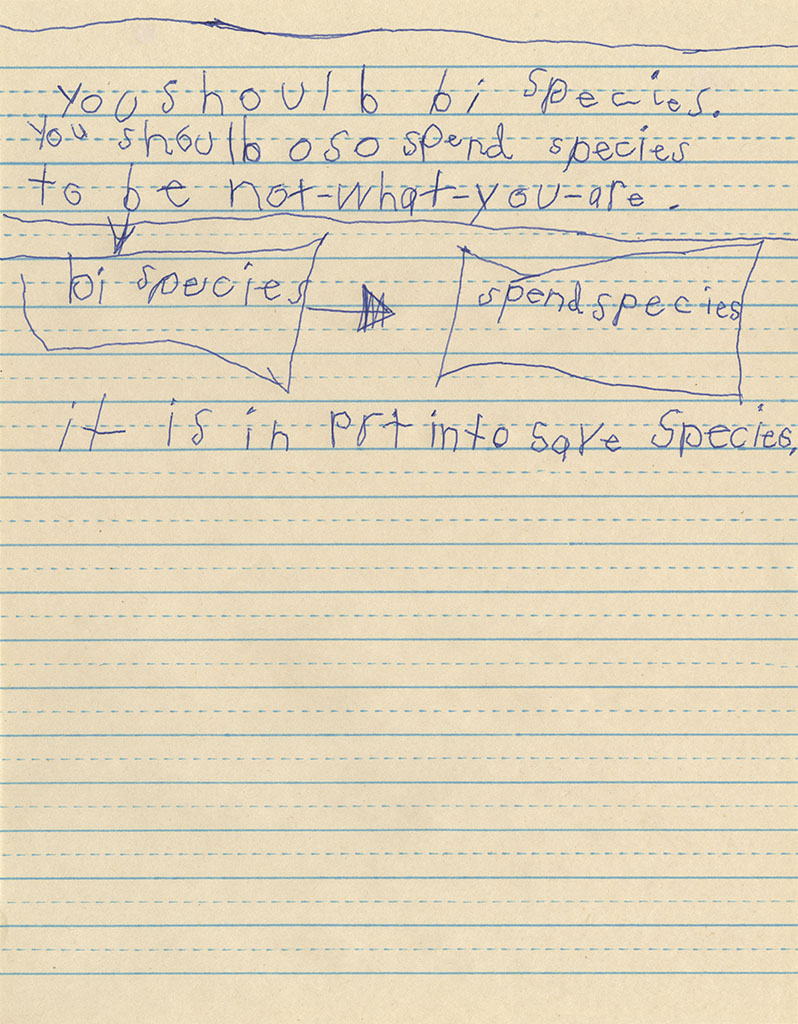 you shoulb bi species.
you shoulb oso spend species
to be not-what-you-are.
bi species
spend species
it is in prt into save species.